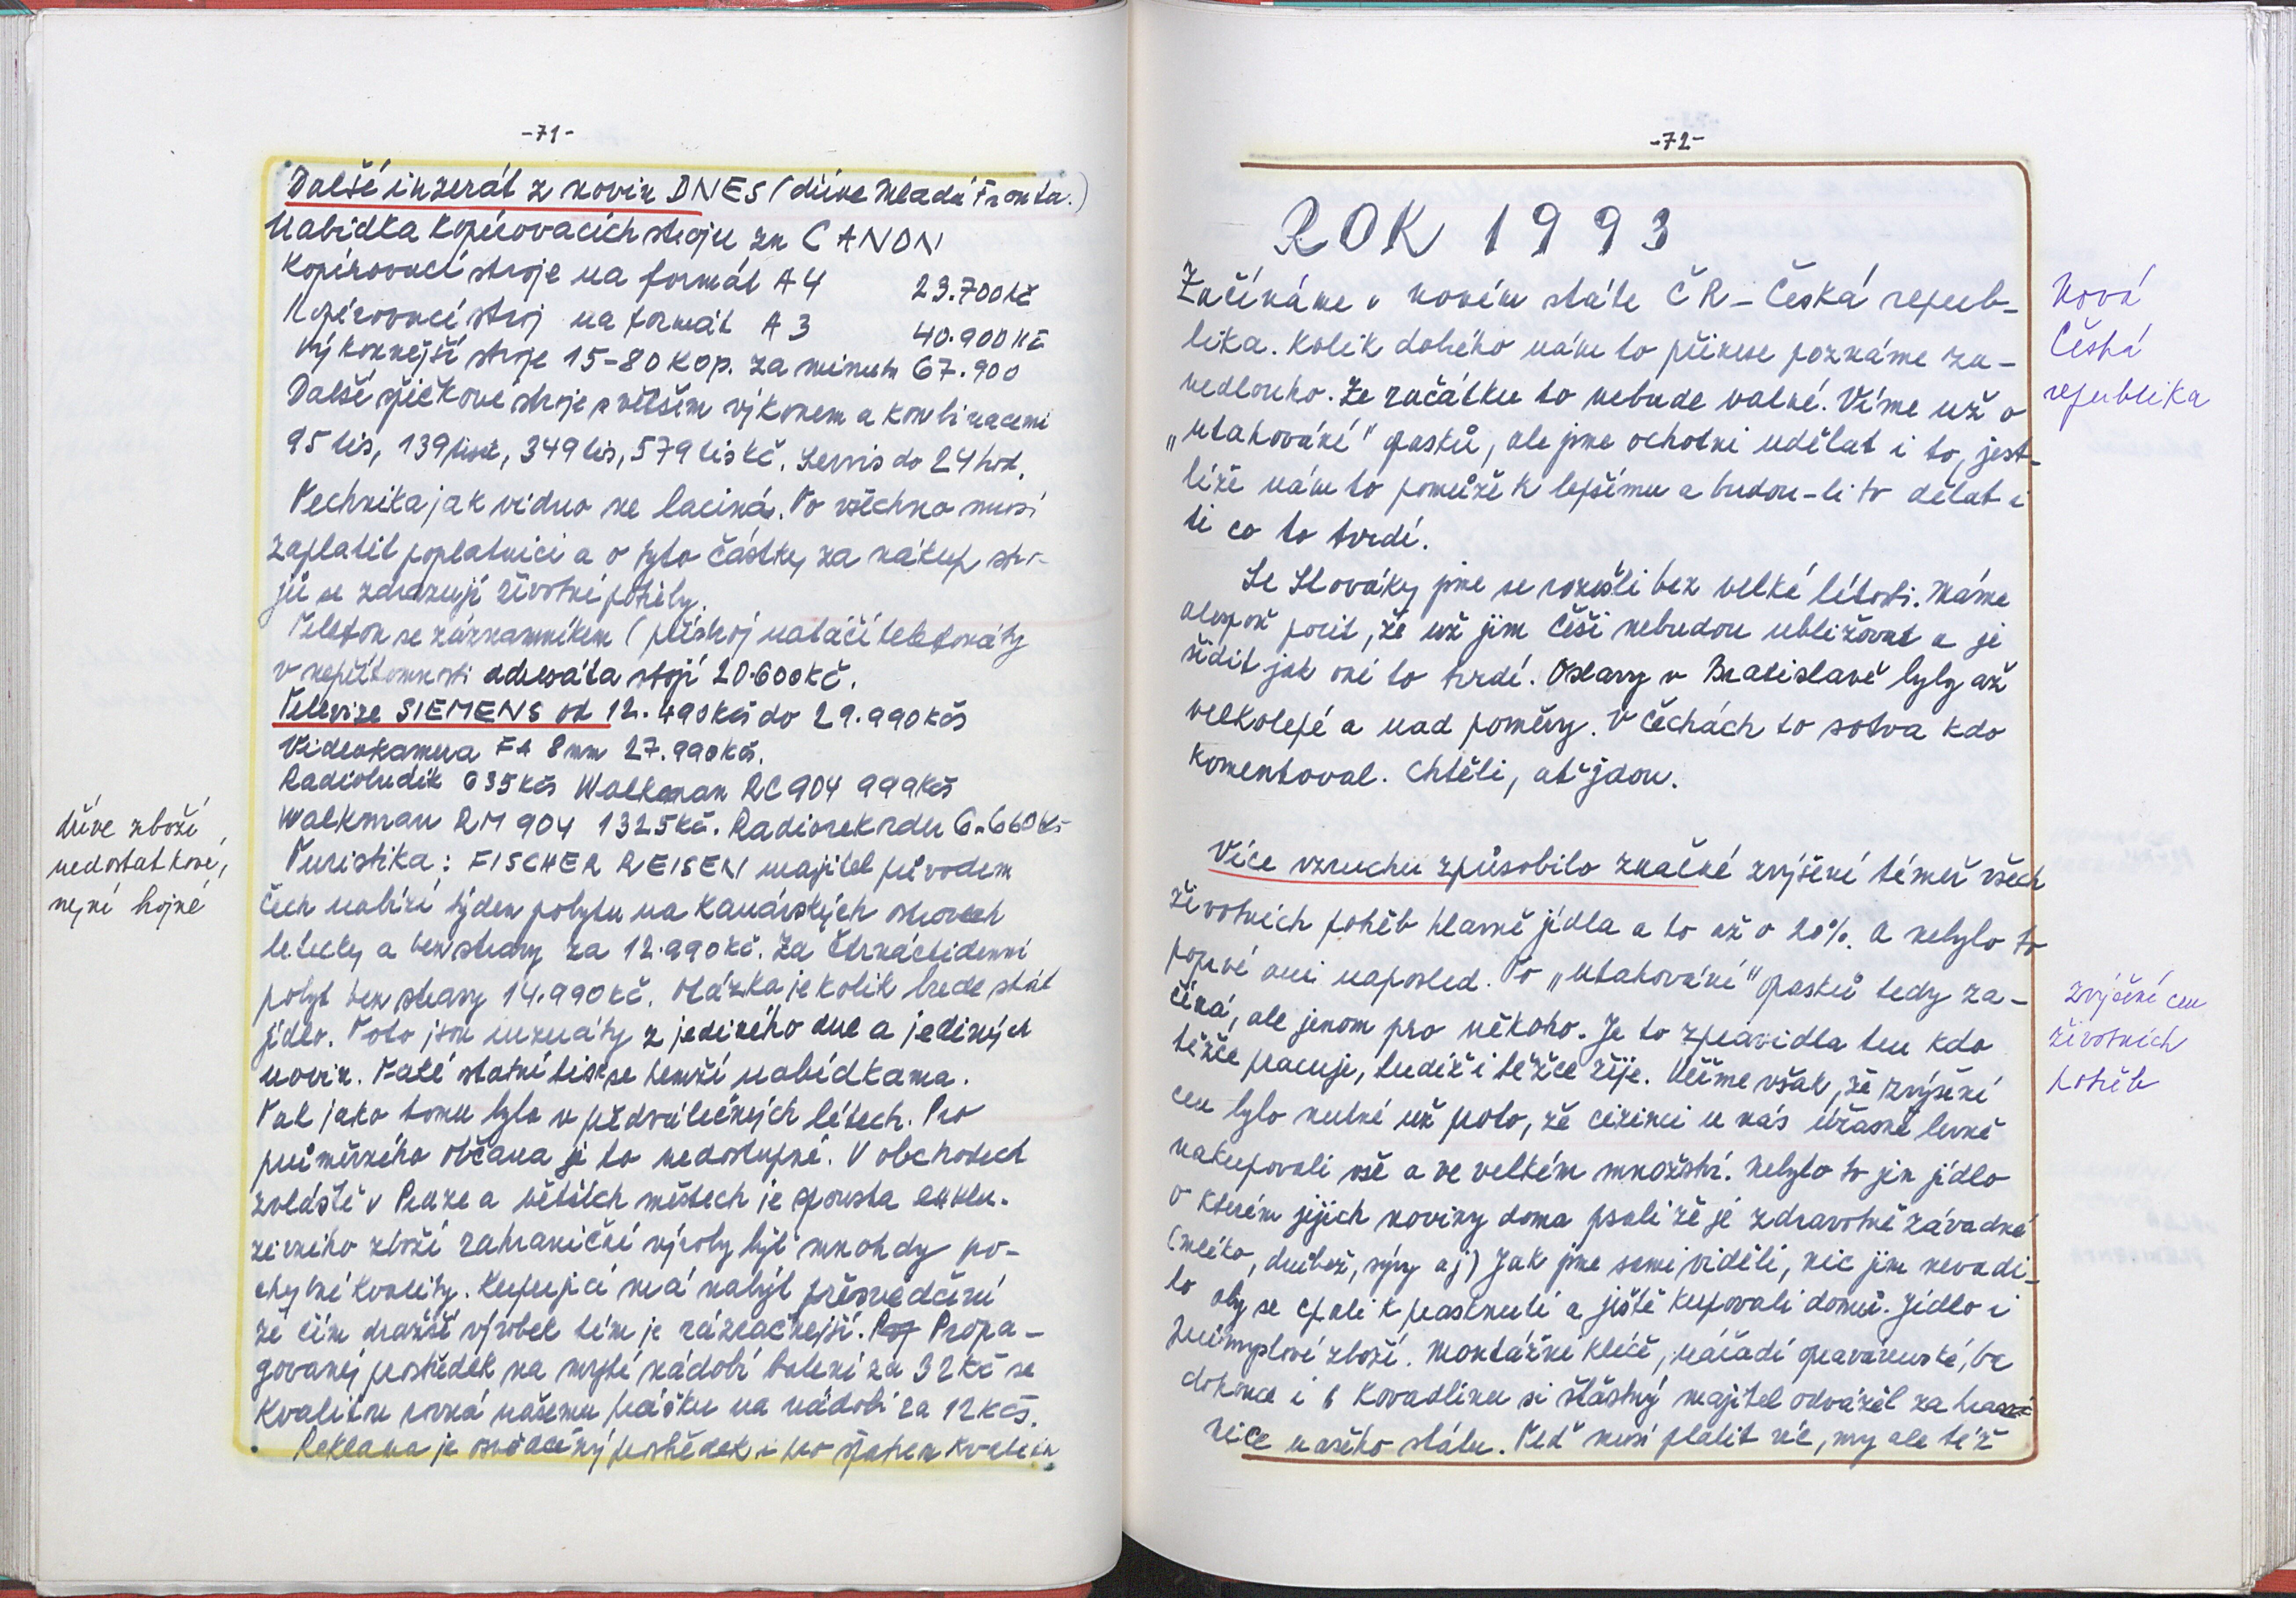 -71-
Další inzerát z novin DNES (dříve Mladá Fronta.)
Nabídka kopírovacích stroju zn CANON
Kopírovací stroje na formát A4 23.700kč
Kopírovací stroj na formát A3 40.900Kč
Výkonnější stroje 15-80 kop. za minutu 67.900
Další špičkové stroje s větším výkonem a kombinacemi
95 tis, 139 tisíc, 349 tis, 579 tis kč. Servis do 24 hod.
Technika jak vidno ne laciná. To všechno musí
zaplatit poplatníci a o tyto částky za nákup stro-
jů se zdražují životní potřeby.
Telefon se záznamníkem (přístroj natáčí telefonáty
v nepřítomnosti adresáta stojí 20.600kč.
Televize SIEMENS od 12.490kčs do 29.990kčs
Videokamera FA 8mm 27.990kčs.
Radiobudík 635kčs Walkman RC904 999kčs
Walkman RM 904 1325kč. Radiorekordu 6.660kč
Turistika: FISCHER REISEN majitel původem
Čech nabízí týden pobytu na Kanárských ostrovech
letecky a bez stravy za 12.990kč. Za čtrnáctidenní
pobyt bez stravy 14.990kč. Otázka je kolik bude stát
jídlo. Toto jsou inzeráty z jediného dne a jediných
novin. Také statní tisk se hemží nabídkama.
Tak jako tomu bylo v předválečných létech. Pro
průměrného občana je to nedostupné. V obchodech
zvláště v Praze a větších městech je spousta exklu-
zivního zboží zahraniční výroby býť mnohdy po-
chybné kvality. Kupující má nabýt přesvědčení
že čím dražší výrobek tím je zázračnější. Propa-
govaný prostředek na myté nádobí balení za 32 Kč se
kvalitou rovná našemu prášku na nádobí za 12 kčs.
Reklama je osvědčený prostředek i pro špatnou kvalitu
dříve zboží
nedostatkové,
nyní hojné
-72-
ROK 1993
Začínáme v novém státe ČR - Česká repub-
lika. Kolik dobrého nám to přinese poznáme za-
nedlouho. Ze začátku to nebude valné. Víme už o
„utahování" opasků, ale jsme ochotni udělat i to, jest-
liže nám to pomůže k lepšímu a budou-li to dělat i
ti co to tvrdí.
Se Slováky jsme se rozešli bez velké lítosti. Máme
alespoň pocit, že už jim Češi nebudou ubližovat a je
šidit jak oni to tvrdí. Oslavy v Bratislavě byly až
velkolepé a nad poměry. V Čechách to sotva kdo
komentoval. Chtěli, ať jdou.
Více vzruchu způsobilo značné zvýšení téměř všech
životních potřeb hlavně jídla a to až o 20%. A nebylo to
poprvé ani naposled. To „utahování" opasků tedy za-
číná, ale jenom pro někoho. Je to zpravidla ten kdo
těžce pracuje, tudíž i těžce žije. Věříme však, že zvýšení
cen bylo nutné už proto, že cizinci u nás úžasně levně
nakupovali vše a ve velkém množství. Nebylo to jen jídlo
o kterém jejich noviny doma psali že je zdravotně závadné
(mléko, drůbež, sýry aj) Jak jsme sami viděli, nic jim nevadi-
lo aby se cpali k prasknutí a ještě kupovali domů. Jídlo i
průmyslové zboží. Montážní klíče, nářadí opravárenské, ba
dokonce i kovadlinu si šťastný majitel odvážel za hra
nice našeho státu. Teď musí platit víc, my ale též
Nová
Česká
republika
zvýšení cen
životních
potřeb